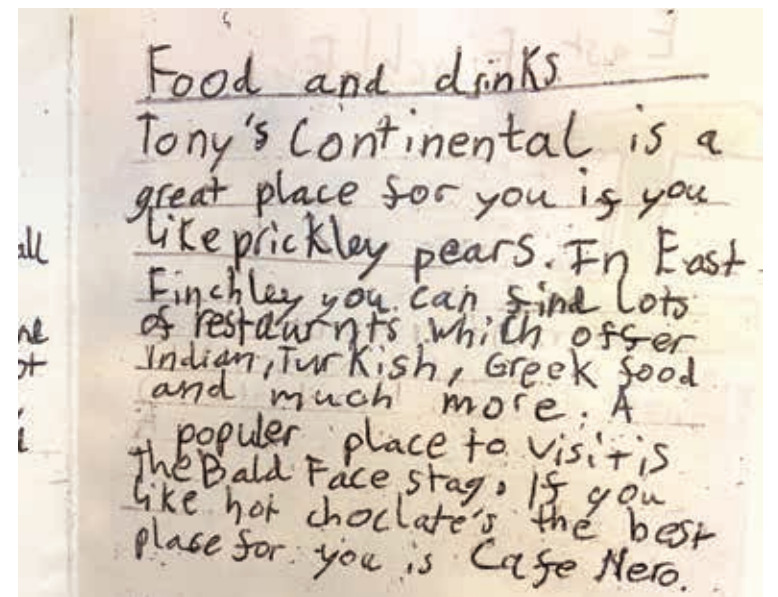 Food and drinks
Tony's Continental is a
great place for you if you
like prickley pears. In East
Finchley you can find lots
of restaurnts which offer
Indian, Turkish, Greek food
and much more. A
populer place to visit is
the Bald Face stag. If you
like hot choclate's the best
place for you is Cafe Nero.
all